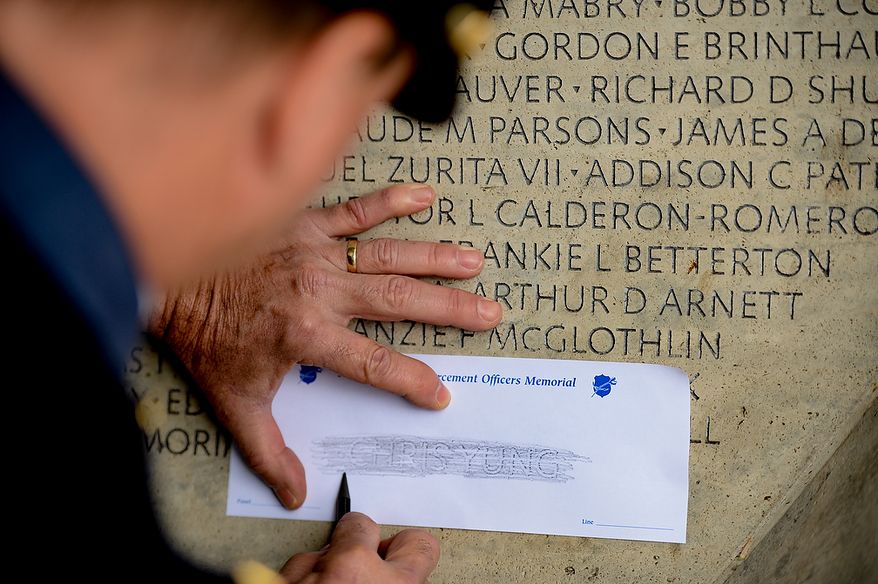 A MABRY · BOBBY L
GORDON E BRINTHAU
AUVER · RICHARD D SHU
AUDE M PARSONS · JAMES A DE
UEL ZURITA VII · ADDISON C PAT
OR L CALDERON-ROMERO
FRANKIE L BETTERTON
ARTHUR D ARNETT
ANZIE F MCGLOTHLIN
rcement Officers Memorial
CHRIS YUNG
Panel
Line